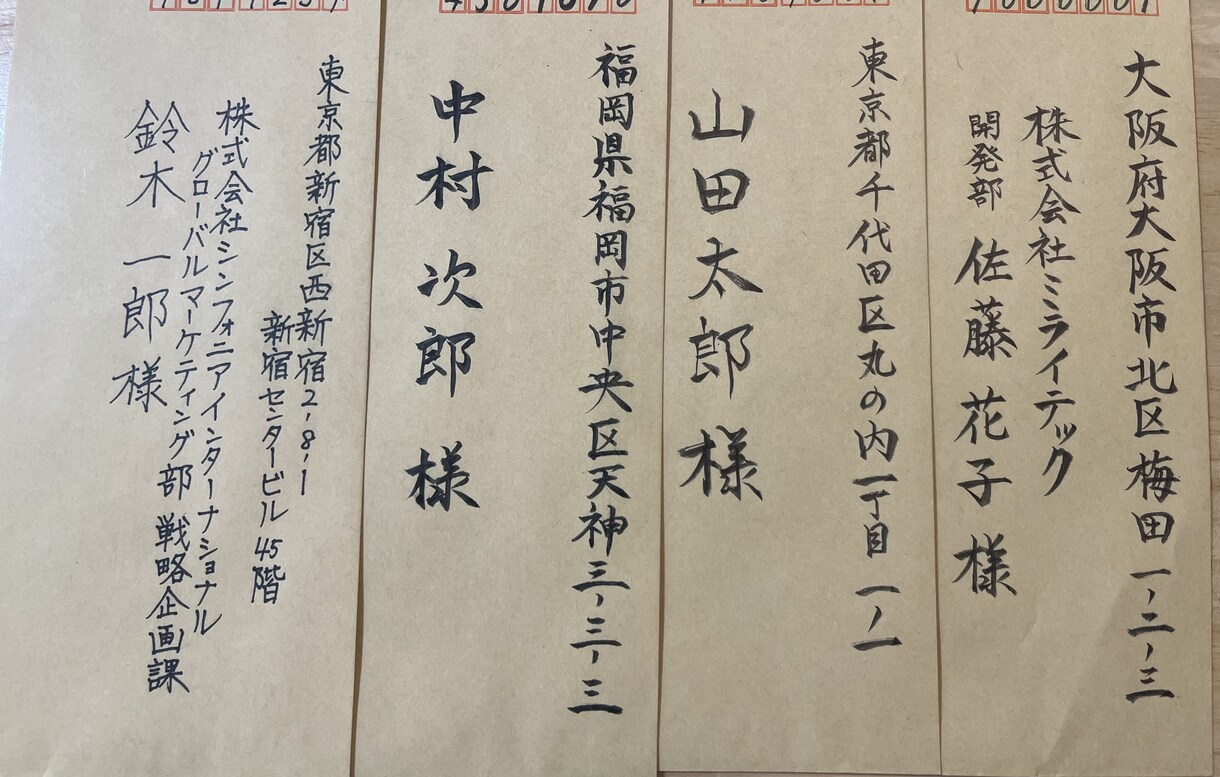 大阪府大阪市北区梅田一-二-三
株式会社ミライテック
開発部 佐藤花子様
東京都千代田区丸の内一丁目一-一
山田太郎様
福岡県福岡市中央区天神三-三-三
中村次郎様
東京都新宿区西新宿2-8-1
新宿センタービル45階
株式会社シンフォニアインターナショナル
グローバルマーケティング部 戦略企画課
鈴木一郎様